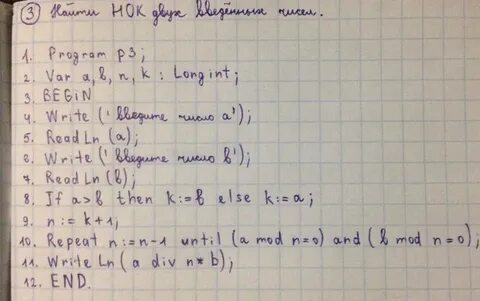 ③ Найти НОК двух введённых чисел.
1. Program p3;
2. Var a, b, n, k : Longint;
3. BEGIN
4. Write ('введите число a');
5. ReadLn (a);
6. Write ('введите число b');
7. ReadLn (b);
8. If a>b then k:=b else k:=a;
9. n:= k+1;
10. Repeat n:=n-1 until (a mod n=0) and (b mod n=0);
11. WriteLn (a div n*b);
12. END.